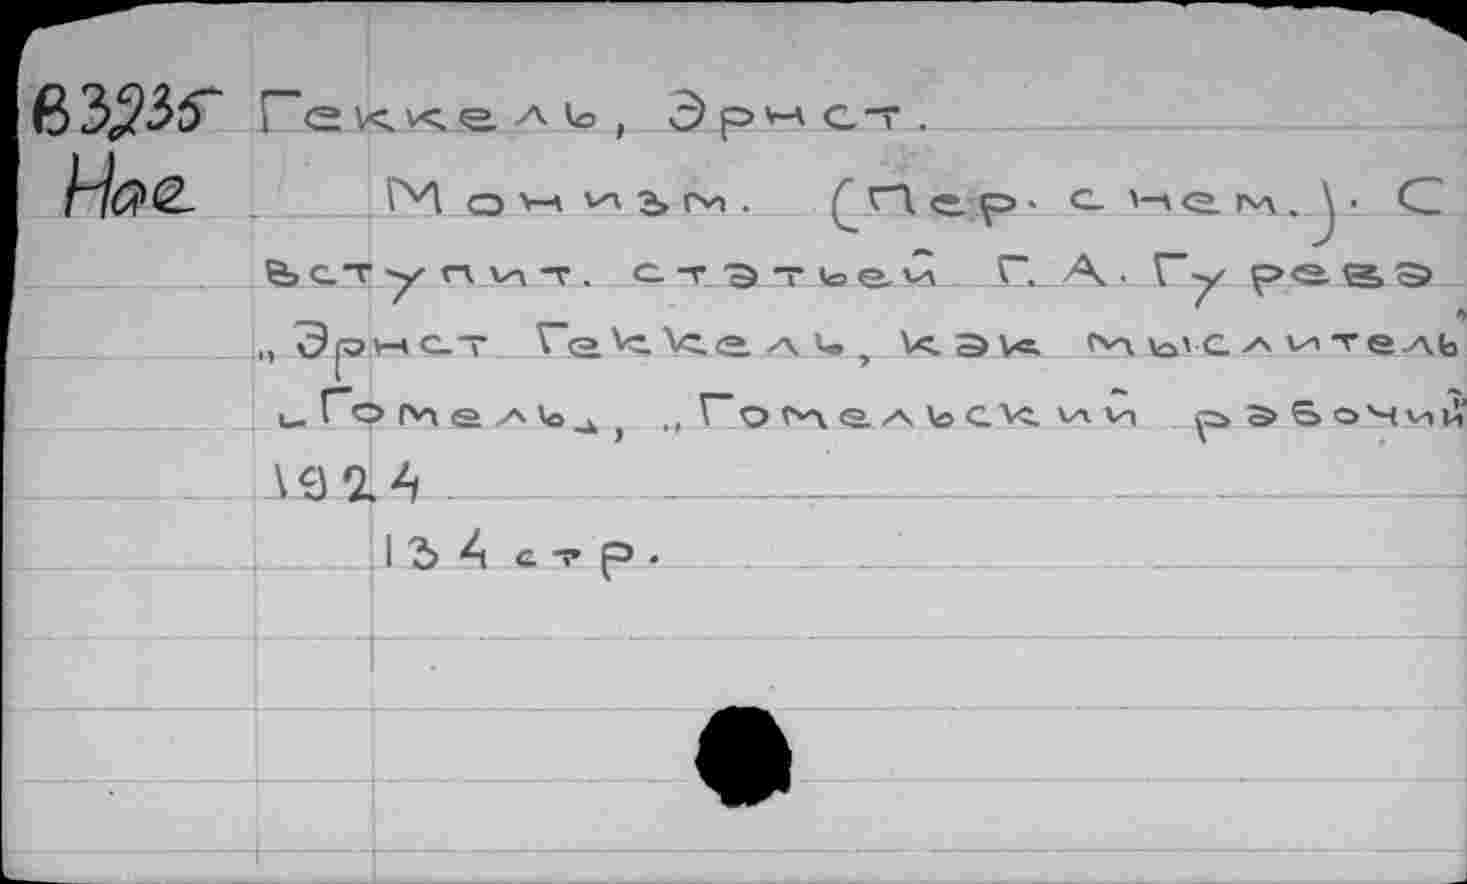 B3235 Геккель, Эрнст.
Hae Монизм. (Пер. с нем.). С
вступит. статьей Г. А. Гурева
„Эрнст Геккель, как мыслитель"
Гомель, „Гомельский рабочий"
1924
134 стр.